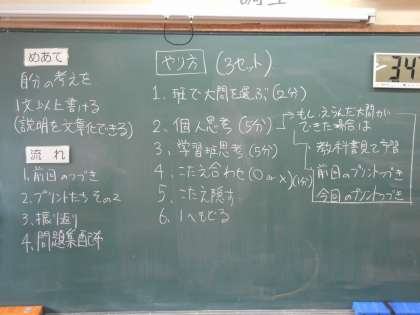 めあて
自分の考えを
1文以上書ける
(説明を文章化できる)
流れ
1.前回のつづき
2.プリントたち その2
3.振り返り
4.問題集配布
やり方 (3セット)
1.班で大問を選ぶ(2分)
2.個人思考(5分)
3.学習班思考(5分)
4.こたえ合わせ(○or×)(1分)
5.こたえ隠す
6.1へもどる
もし、えらんだ大問が
できた場合は
教科書見て予習
前回のプリントつづき
今回のプリントつづき
34